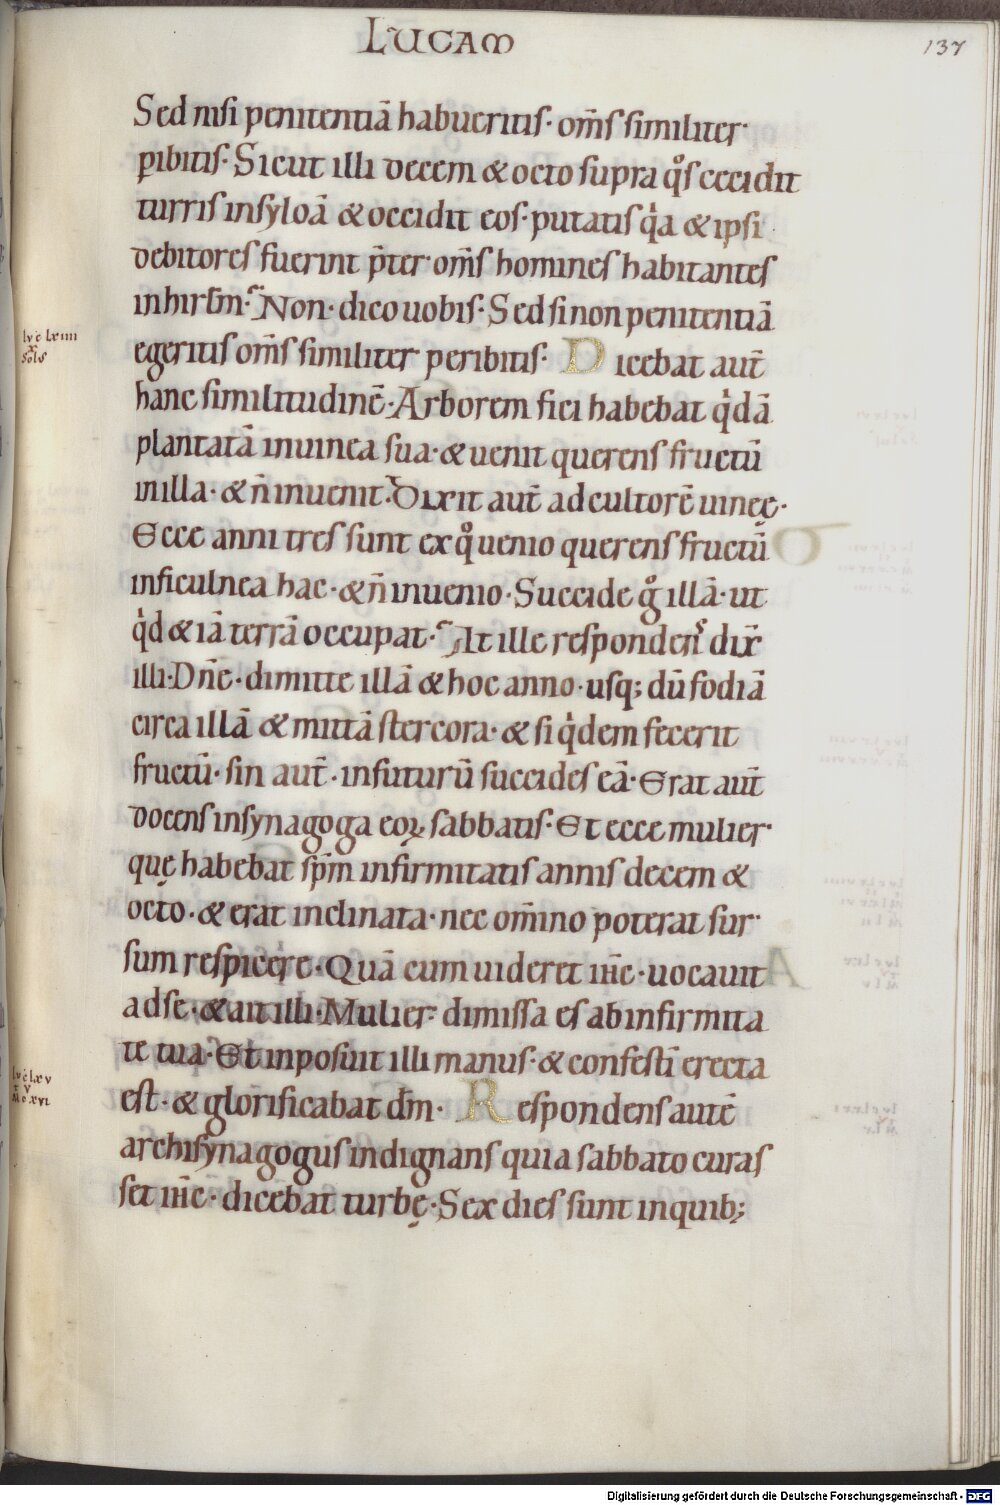 LUCAM
137
Sed nisi penitentiā habueritis· om̄s similiter·
ꝑibitis· Sicut illi decem & octo supra qͦs cecidit
turris insyloā & occidit eos· putatis qͥa & ipsi
debitores fuerint p̄ter om̄s homines habitantes
inhirłm· Non· dico uobis· Sed si non penitentiā
egeritis om̄s similiter peribitis· Dicebat aut̄
hanc similitudinē· Arborem fici habebat qͥdā
plantatā inuinea sua· & uenit querens fructū
inilla· & n̄ inuenit· Dixit aut̄ ad cultorē uineę·
Ecce anni tres sunt ex qͦ uenio querens fructū
inficulnea hac· & n̄ inuenio· Succide gͦ illā· ut
qͥd & iā terrā occupat· At ille respondens dix̄
illi· Dn̄e· dimitte illā & hoc anno· usq; dū fodiā
circa illā & mittā stercora· & si qͥdem fecerit
fructū· sin aut̄· infuturū succides eā· Erat aut̄
docens insynagoga eoꝝ sabbatis· Et ecce mulier·
quę habebat sp̄m infirmitatis annis decem &
octo· & erat inclinata· nec om̄ino poterat sur
sum respicere· Quā cum uideret ih̄c· uocauit
adse· & ait illi· Mulier· dimissa es ab infirmita
te tua· Et inposuit illi manus· & confesti̅ erecta
est· & glorificabat dm̄· Respondens autē
archisynagogus indignans quia sabbato curas
set ih̄c· dicebat turbę· Sex dies sunt inquib;
luc̄ lxiiii
x
Sols
luc̄ lxv
v
Digitalisierung gefördert durch die Deutsche Forschungsgemeinschaft - DFG